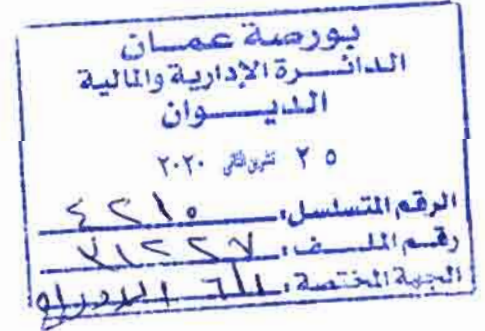 بورصة عمان
الدائرة الإدارية والمالية
الديوان
٢٥ تشرين الثاني ٢٠٢٠
الرقم المتسلسل: ٤٢١٥
رقم الملف: ٣١٢٢٧
الجهة المختصة: